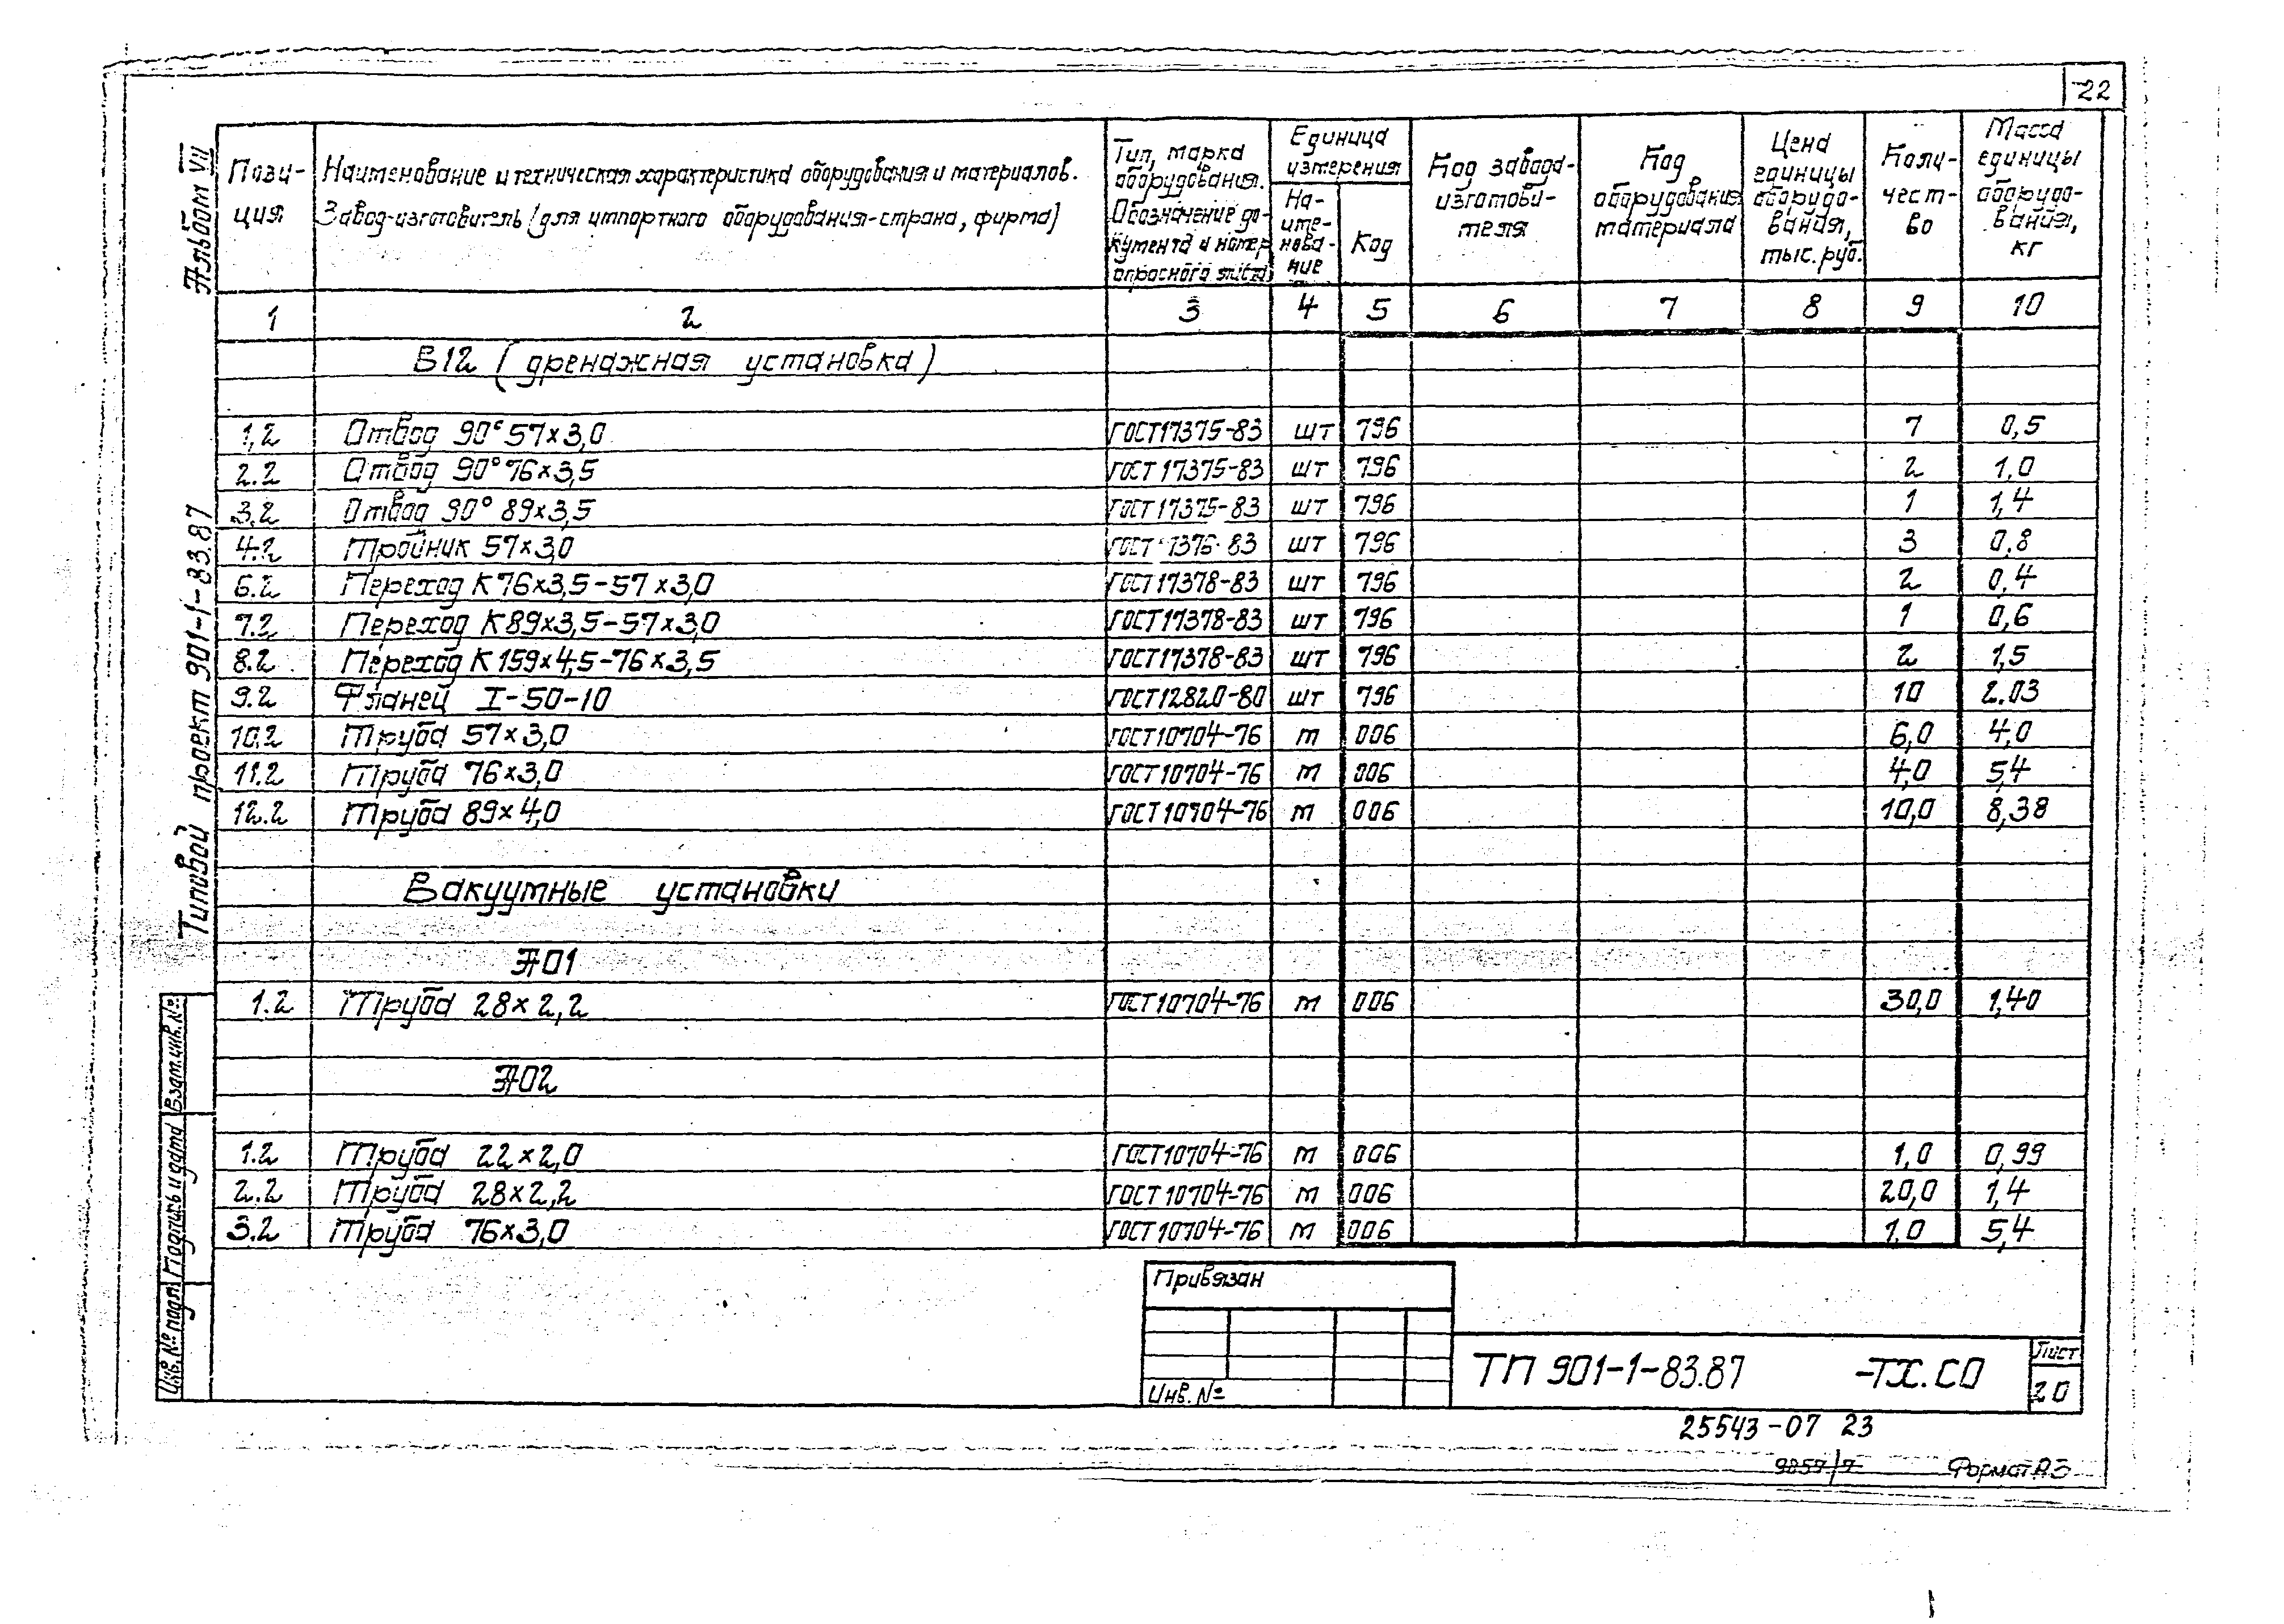 22
Альбом VII
Типовой проект 901-1-83.87
Пози-
ция
Наименование и техническая характеристика оборудования и материалов.
Завод-изготовитель (для импортного оборудования-страна, фирма)
Тип, марка
оборудования.
Обозначение до-
кумента и номер
опросного листа
Единица
измерения
На-
име-
нова-
ние
Код
Код завода-
изготови-
теля
Код
оборудования
материала
Цена
единицы
оборудо-
вания,
тыс. руб.
Коли-
чест-
во
Масса
единицы
оборудо-
вания,
кг
1 2 3 4 5 6 7 8 9 10
В12 (дренажная установка)
1,2 Отвод 90° 57×3,0 ГОСТ17375-83 шт 796 7 0,5
2.2 Отвод 90° 76×3,5 ГОСТ 17375-83 шт 796 2 1,0
3.2 Отвод 90° 89×3,5 ГОСТ 17375-83 шт 796 1 1,4
4.2 Тройник 57×3,0 ГОСТ 17376-83 шт 796 3 0,8
6.2 Переход К 76×3,5-57×3,0 ГОСТ 17378-83 шт 796 2 0,4
7.2 Переход К 89×3,5-57×3,0 ГОСТ17378-83 шт 796 1 0,6
8.2 Переход К 159×4,5-76×3,5 ГОСТ17378-83 шт 796 2 1,5
9.2 Фланец I-50-10 ГОСТ12820-80 шт 796 10 2.03
10.2 Труба 57×3,0 ГОСТ10704-76 м 006 6,0 4,0
11.2 Труба 76×3,0 ГОСТ10704-76 м 006 4,0 5,4
12.2 Труба 89×4,0 ГОСТ10704-76 м 006 10,0 8,38
Вакуумные установки
А01
1.2 Труба 28×2,2 ГОСТ10704-76 м 006 30,0 1,40
А02
1.2 Труба 22×2,0 ГОСТ10704-76 м 006 1,0 0,99
2.2 Труба 28×2,2 ГОСТ 10704-76 м 006 20,0 1,4
3.2 Труба 76×3,0 ГОСТ 10704-76 м 006 1.0 5,4
Взам. инв. №
Подпись и дата
Инв. № подл.
Привязан
Инв. №
ТП 901-1-83.87 -ТХ.СО
Лист
20
25543-07 23
9857/7
Формат А3